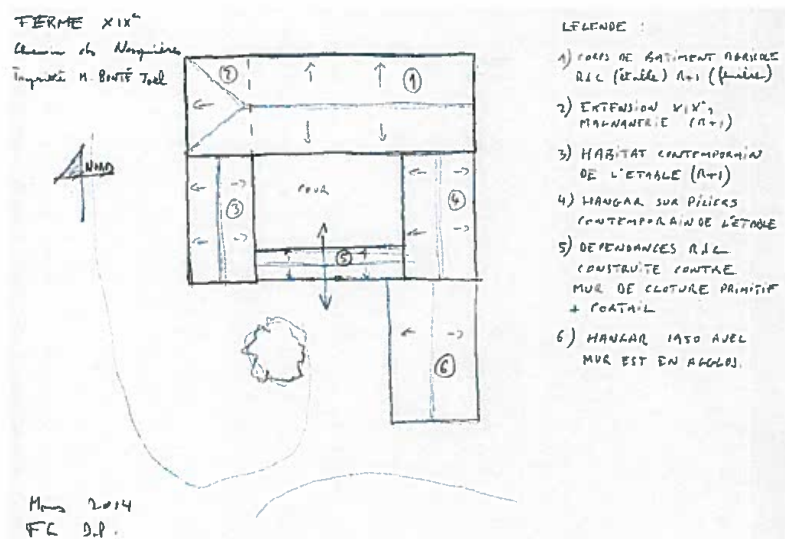 FERME XIXe
Chemin des Nesquières
Propriété M. BONTÉ Joël
NORD
2
1
COUR
3
4
5
6
Mars 2014
FC D.P.
LEGENDE :
1) CORPS DE BATIMENT AGRICOLE
RdC (étable) R+1 (fenière)
2) EXTENSION XIXe,
MAGNANERIE (R+1)
3) HABITAT CONTEMPORAIN
DE L'ETABLE (R+1)
4) HANGAR SUR PILIERS
CONTEMPORAIN DE L'ETABLE
5) DEPENDANCES RdC
CONSTRUITE CONTRE
MUR DE CLOTURE PRIMITIF
+ PORTAIL
6) HANGAR 1950 AVEC
MUR EST EN AGGLOS.